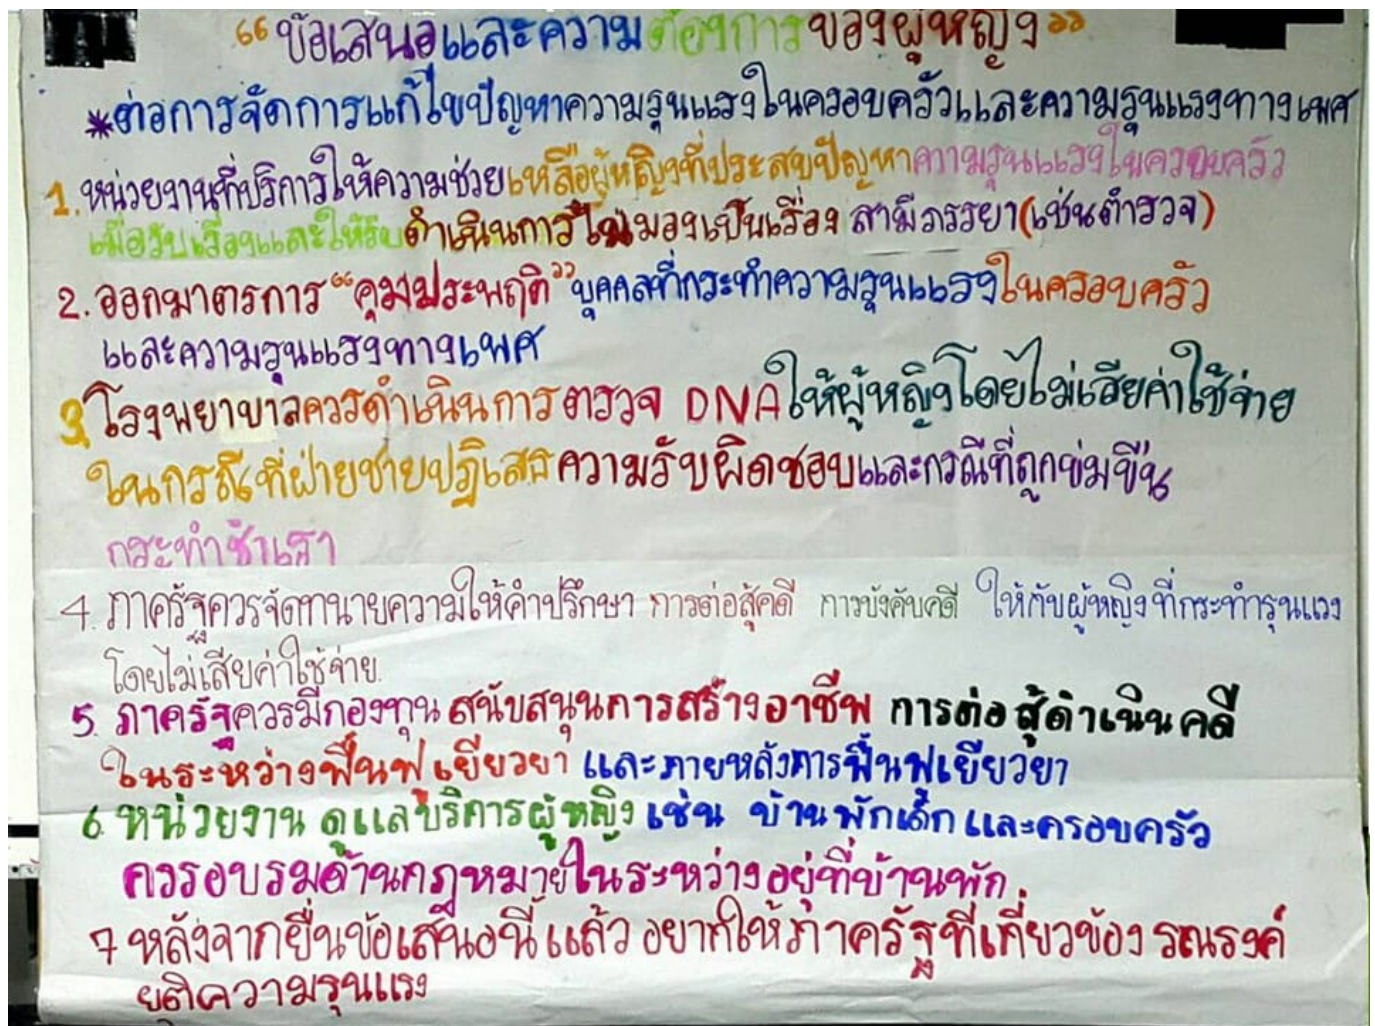 “ข้อเสนอและความต้องการของผู้หญิง”
*ต่อการจัดการแก้ไขปัญหาความรุนแรงในครอบครัวและความรุนแรงทางเพศ
1. หน่วยงานที่บริการให้ความช่วยเหลือผู้หญิงที่ประสบปัญหาความรุนแรงในครอบครัว
เมื่อรับเรื่องและให้รับดำเนินการไม่มองเป็นเรื่อง สามีภรรยา(เช่นตำรวจ)
2. ออกมาตรการ “คุมประพฤติ” บุคคลที่กระทำความรุนแรงในครอบครัว
และความรุนแรงทางเพศ
3. โรงพยาบาลควรดำเนินการตรวจ DNA ให้ผู้หญิงโดยไม่เสียค่าใช้จ่าย
ในกรณีที่ฝ่ายชายปฏิเสธความรับผิดชอบและกรณีที่ถูกข่มขืน
กระทำชำเรา
4. ภาครัฐควรจัดทนายความให้คำปรึกษา การต่อสู้คดี การบังคับคดี ให้กับผู้หญิง ที่กระทำรุนแรง
โดยไม่เสียค่าใช้จ่าย.
5. ภาครัฐควรมีกองทุน สนับสนุนการสร้างอาชีพ การต่อสู้ดำเนินคดี
ในระหว่างฟื้นฟู เยียวยา และภายหลังการฟื้นฟูเยียวยา
6. หน่วยงาน ดูแลบริการผู้หญิง เช่น บ้านพักเด็ก และครอบครัว
ควรอบรมด้านกฎหมายในระหว่างอยู่ที่บ้านพัก
7 หลังจากยื่นข้อเสนอนี้แล้ว อยากให้ภาครัฐที่เกี่ยวข้อง รณรงค์
ยุติความรุนแรง